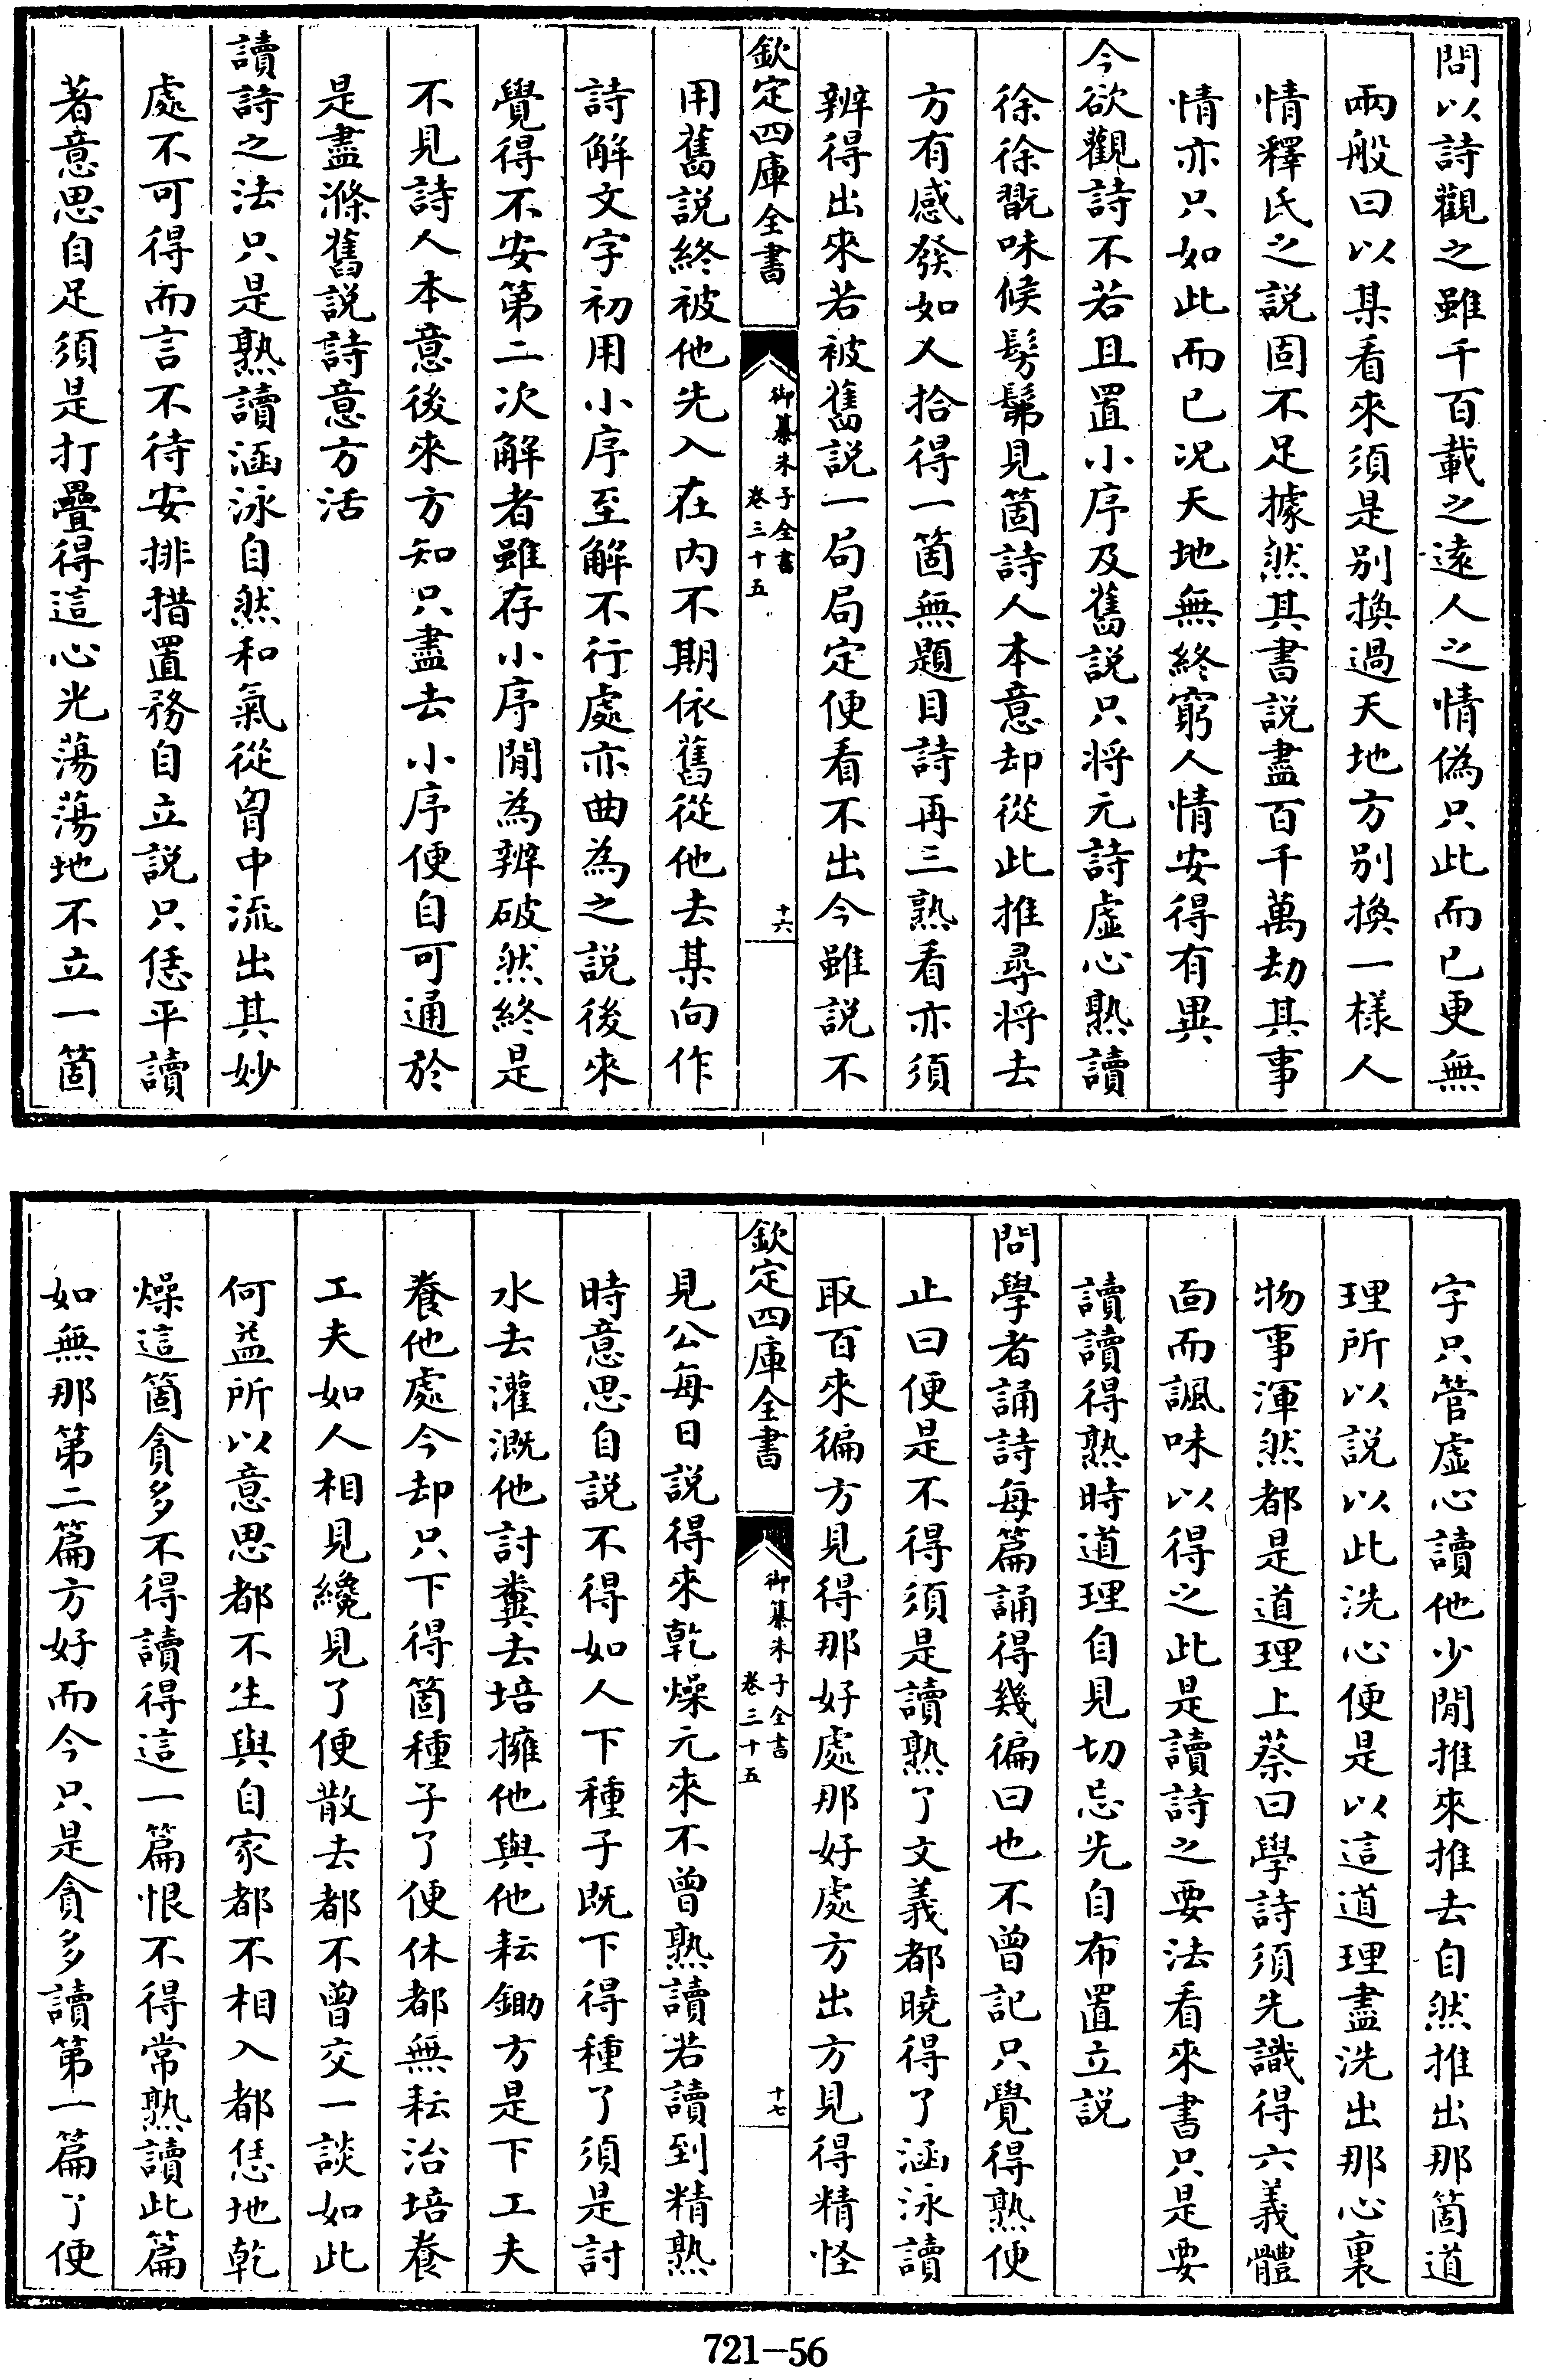 問以詩觀之雖千百載之遠人之情偽只此而已更無
兩般曰以某看來須是别換過天地方别換一樣人
情釋氏之説固不足據然其書説盡百千萬劫其事
情亦只如此而已况天地無終窮人情安得有異
今欲觀詩不若且置小序及舊説只将元詩虚心熟讀
徐徐翫味候髣髴見箇詩人本意却從此推尋将去
方有感發如人拾得一箇無題目詩再三熟看亦須
辨得出來若被舊説一局局定便看不出今雖説不
欽定四庫全書
御纂朱子全書
卷三十五
十六
用舊説終被他先入在内不期依舊從他去某向作
詩解文字初用小序至解不行處亦曲為之説後來
覺得不安第二次解者雖存小序閒為辨破然終是
不見詩人本意後來方知只盡去小序便自可通於
是盡滌舊説詩意方活
讀詩之法只是熟讀涵泳自然和氣從胷中流出其妙
處不可得而言不待安排措置務自立説只恁平讀
著意思自足須是打疊得這心光蕩蕩地不立一箇
字只管虚心讀他少閒推來推去自然推出那箇道
理所以説以此洗心便是以這道理盡洗出那心裏
物事渾然都是道理上蔡曰學詩須先識得六義體
面而諷味以得之此是讀詩之要法看來書只是要
讀讀得熟時道理自見切忌先自布置立説
問學者誦詩每篇誦得幾徧曰也不曾記只覺得熟便
止曰便是不得須是讀熟了文義都曉得了涵泳讀
取百來徧方見得那好處那好處方出方見得精怪
欽定四庫全書
御纂朱子全書
卷三十五
十七
見公每日説得來乾燥元來不曾熟讀若讀到精熟
時意思自説不得如人下種子既下得種了須是討
水去灌溉他討糞去培擁他與他耘鋤方是下工夫
養他處今却只下得箇種子了便休都無耘治培養
工夫如人相見纔見了便散去都不曾交一談如此
何益所以意思都不生與自家都不相入都恁地乾
燥這箇貪多不得讀得這一篇恨不得常熟讀此篇
如無那第二篇方好而今只是貪多讀第一篇了便
721-56